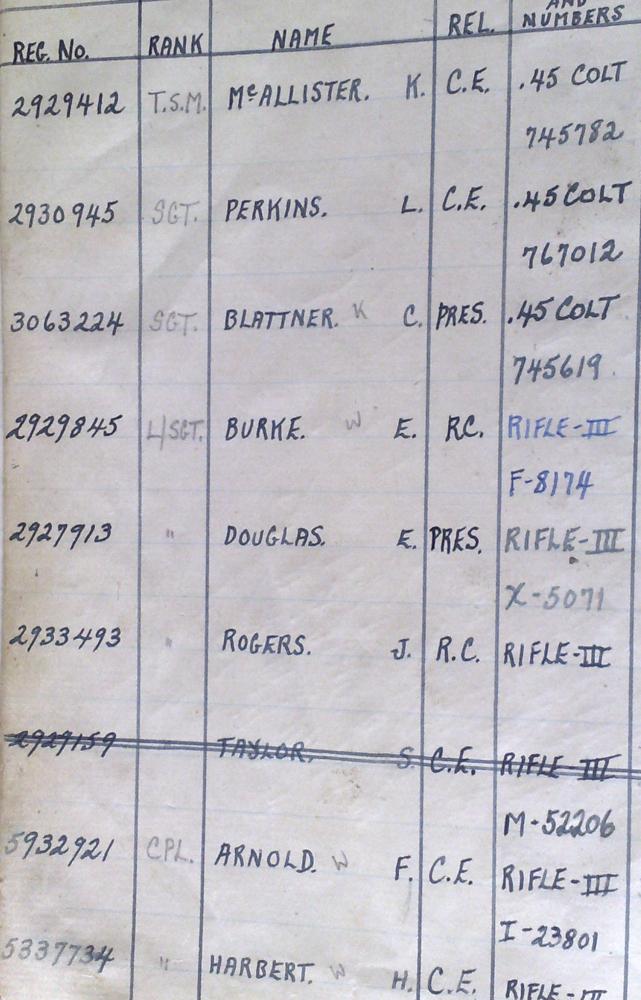 AND
REG. No. RANK NAME REL. NUMBERS
2929412 T.S.M. McALLISTER. K. C.E. .45 COLT
745782
2930945 SGT. PERKINS. L. C.E. .45 COLT
767012
3063224 SGT. BLATTNER. K C. PRES. .45 COLT
745619
2929845 L/SGT. BURKE. W E. RC. RIFLE-III
F-8174
2927913 " DOUGLAS. E. PRES. RIFLE-III
X-5071
2933493 " ROGERS. J. R.C. RIFLE-III
2927159 TAYLOR. S. C.E. RIFLE III
M-52206
5932921 CPL. ARNOLD. W F. C.E. RIFLE-III
I-23801
5337734 " HARBERT. W H. C.E. RIFLE-III